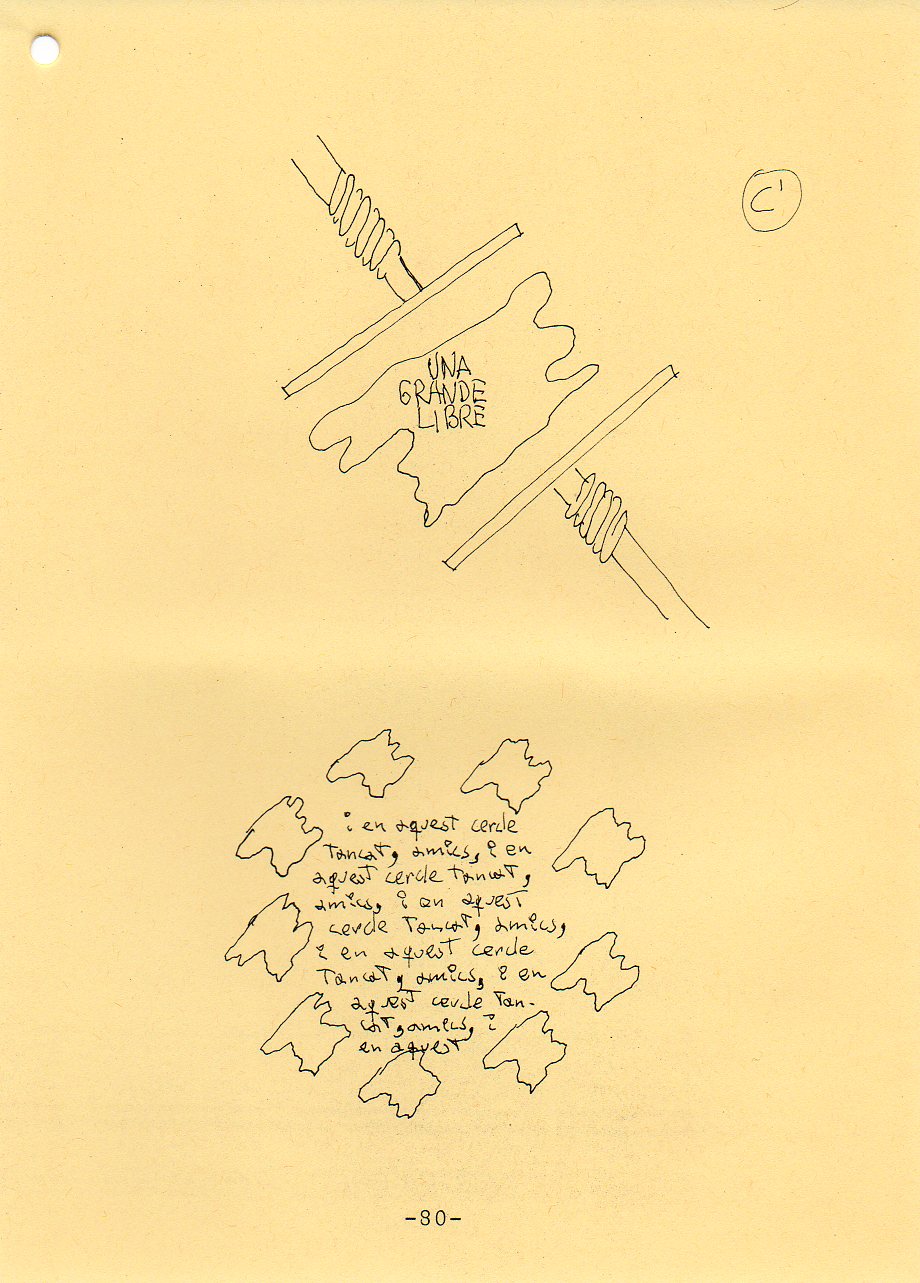 C'
UNA
GRANDE
LIBRE
i en aquest cercle
tancat, amics, i en
aquest cercle tancat,
amics, i en aquest
cercle tancat, amics,
i en aquest cercle
tancat, amics, i en
aquest cercle tan-
cat, amics, i
en aquest
-80-